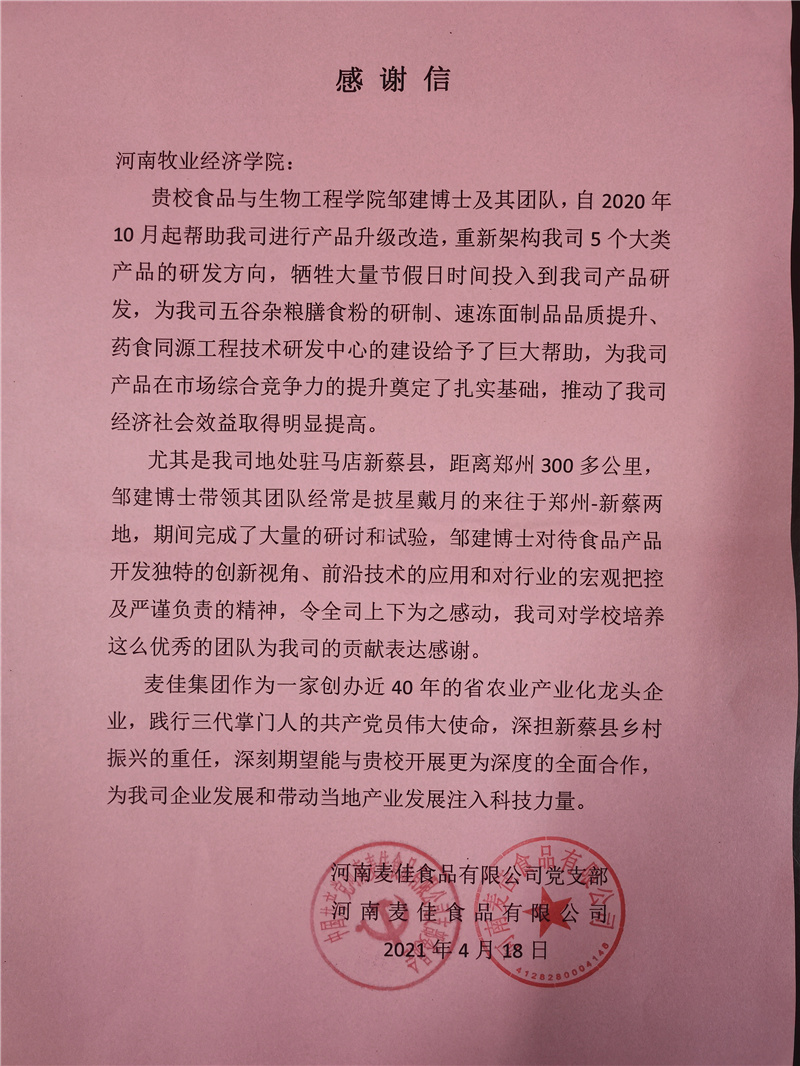 感谢信
河南牧业经济学院：
贵校食品与生物工程学院邹建博士及其团队，自 2020 年
10 月起帮助我司进行产品升级改造，重新架构我司 5 个大类
产品的研发方向，牺牲大量节假日时间投入到我司产品研
发，为我司五谷杂粮膳食粉的研制、速冻面制品品质提升、
药食同源工程技术研发中心的建设给予了巨大帮助，为我司
产品在市场综合竞争力的提升奠定了扎实基础，推动了我司
经济社会效益取得明显提高。
尤其是我司地处驻马店新蔡县，距离郑州 300 多公里，
邹建博士带领其团队经常是披星戴月的来往于郑州-新蔡两
地，期间完成了大量的研讨和试验，邹建博士对待食品产品
开发独特的创新视角、前沿技术的应用和对行业的宏观把控
及严谨负责的精神，令全司上下为之感动，我司对学校培养
这么优秀的团队为我司的贡献表达感谢。
麦佳集团作为一家创办近 40 年的省农业产业化龙头企
业，践行三代掌门人的共产党员伟大使命，深担新蔡县乡村
振兴的重任，深刻期望能与贵校开展更为深度的全面合作，
为我司企业发展和带动当地产业发展注入科技力量。
河南麦佳食品有限公司党支部
河南麦佳食品有限公司
2021 年 4 月 18 日
河南麦佳食品有限公司
4128280004148